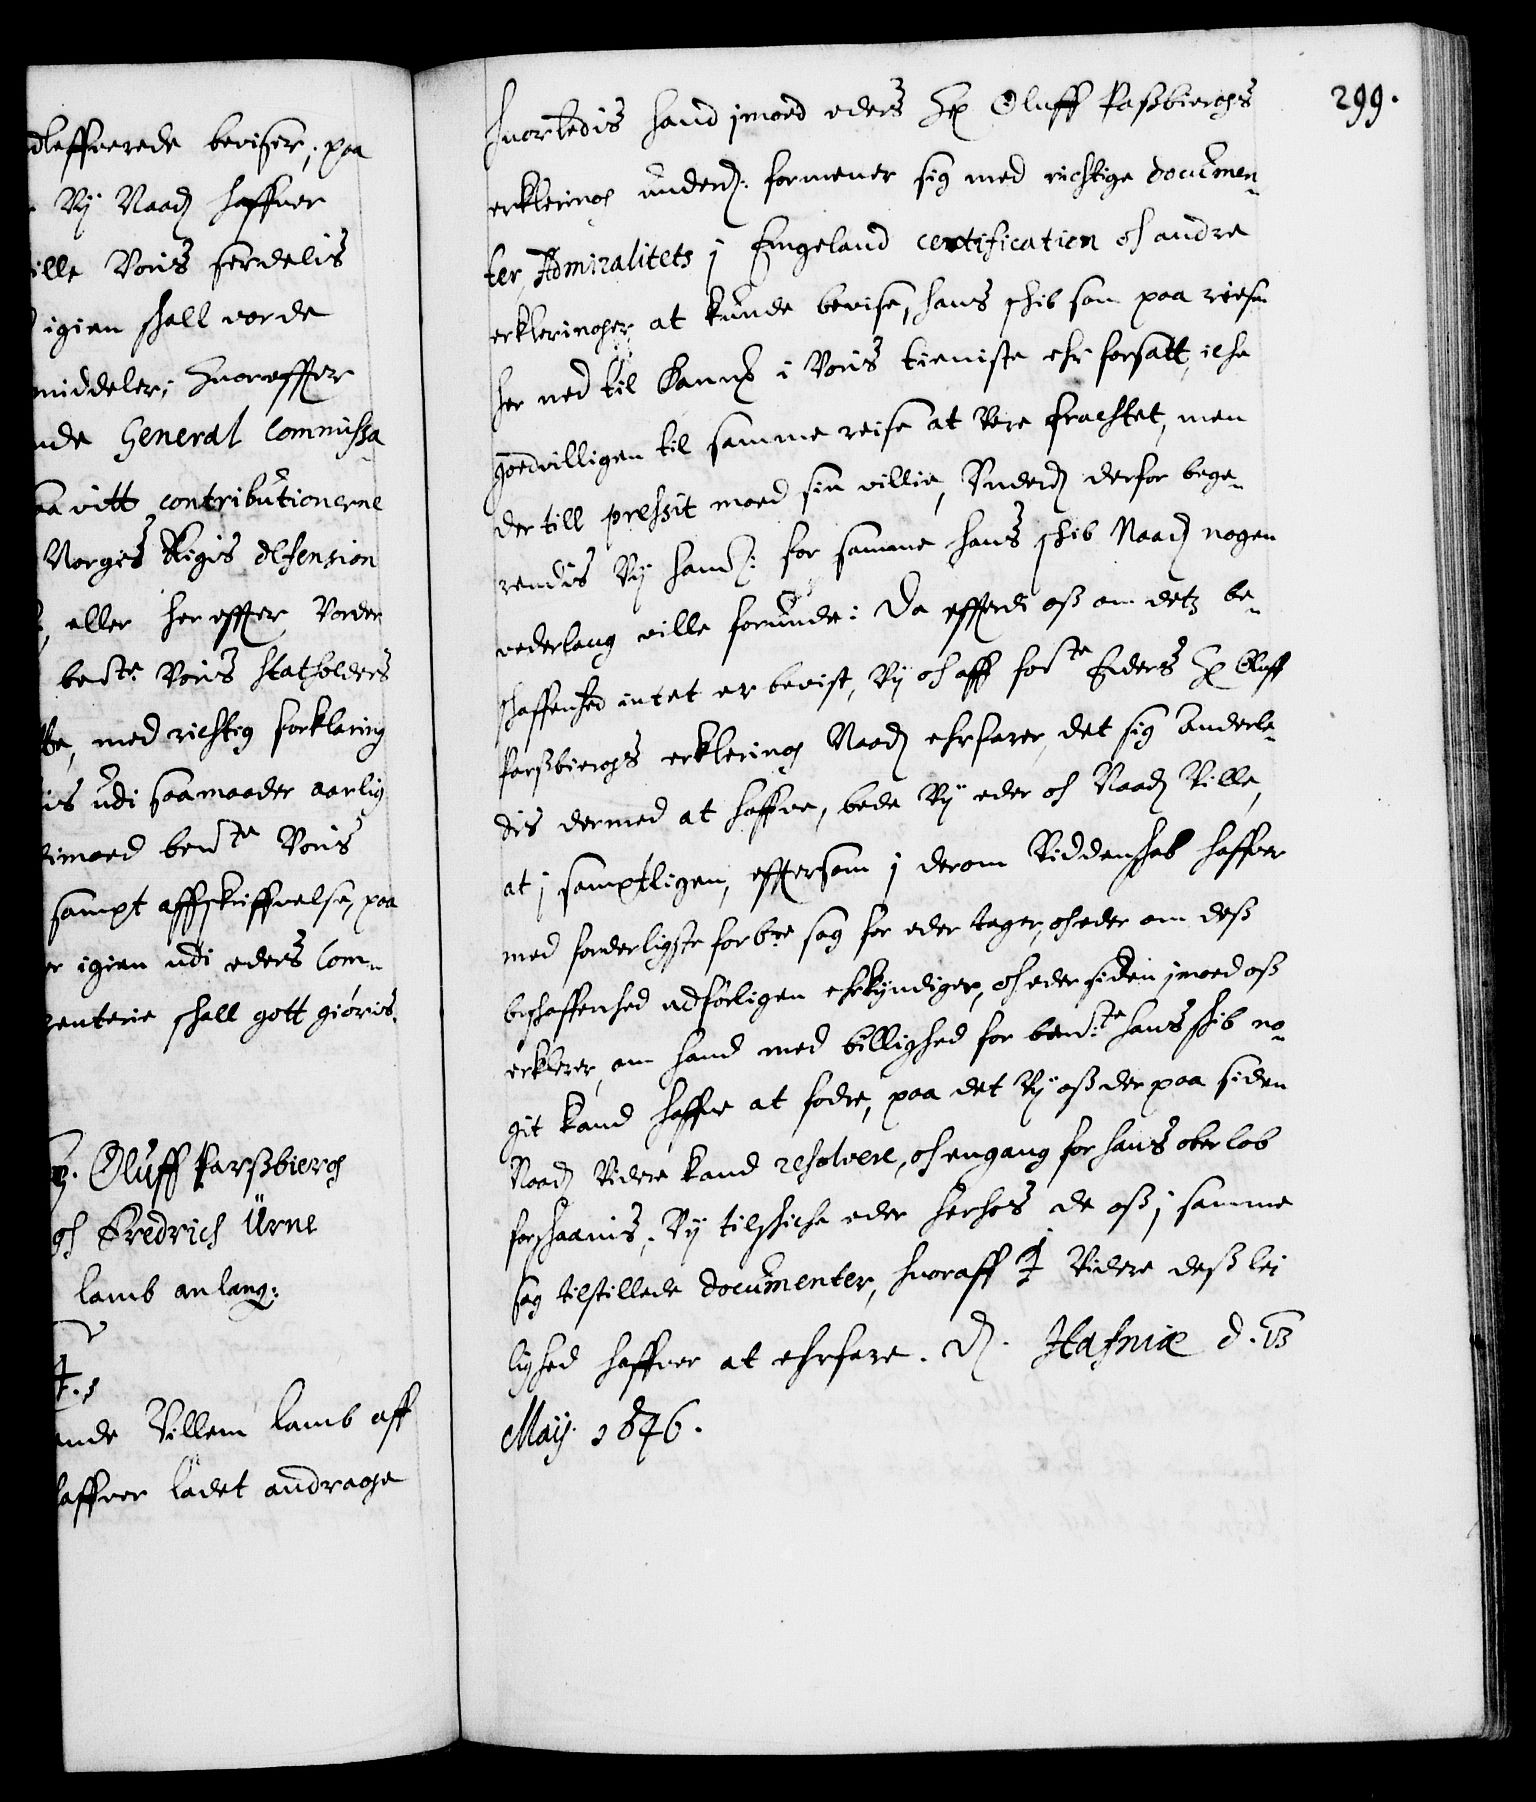 dleffverede beviser, paa
Vij Naad haffver
ille Voris serdelis
igien skall vorde
middeler, Hvoreffter
nde General Commissa
aa vitt contributionerne
Norgis Rigis defension
, eller her effter Vorder
bente Voris Statholders
tte, med richtig forklaring
is udi saamaader aarlig
imoed bente Voris
sampt affskriffvelse, paa
er igien udi eders Com-
renterie skall gott giöris.
H. Oluff Parssbierg
og Fredrich Ürne
lamb anlang:
ende Villem lamb aff
haffver ladet andrage
299.
Huorledis hand jmod eders H. Oluff Passbiergs
erklering underd: formener sig med richtige documen-
ter, Admiralitets j Engeland certification och andre
erklæringer at kunde bevise, hans skib som paa reisen
her ned til Danmk i Voris tieniste ehr forsatt, iche
goedvilligen til samme reise at Vere frachtet, men
der till pressit moed sin villie, Underd derfor bege-
rendis Vij hans: for samme hans skib Naad nogen
vederlaug ville forunde: Da efftersom oss om detz be-
skaffenhed intet er bevist, Vij och aff forte Eders H. Oluff
Parssbiergs erklering Naad ehrfarer, det sig anderle-
dis dermed at haffve, bede Vij eder och Naad Ville,
at j samptligen, efftersom j derom Viddenskab haffver
med forderligste forbre sag for eder tager, och eder om dess
beskaffenhed udförligen erkyndiger, och eder siden jmod oss
erklerer, om hand med billighed for bente hans skib no-
git kand haffve at fodre, paa det Vij oss der paa siden
Naad Videre kand resolvere, och engang for hans oberlob
forskaanis, Vij tilskicke eder herhos de oss j samme
sag tilstillede documenter, huoraff J Videre dess lei
lighed haffver at ehrfare. D. Hafniæ d. 13
Maij. 1646.